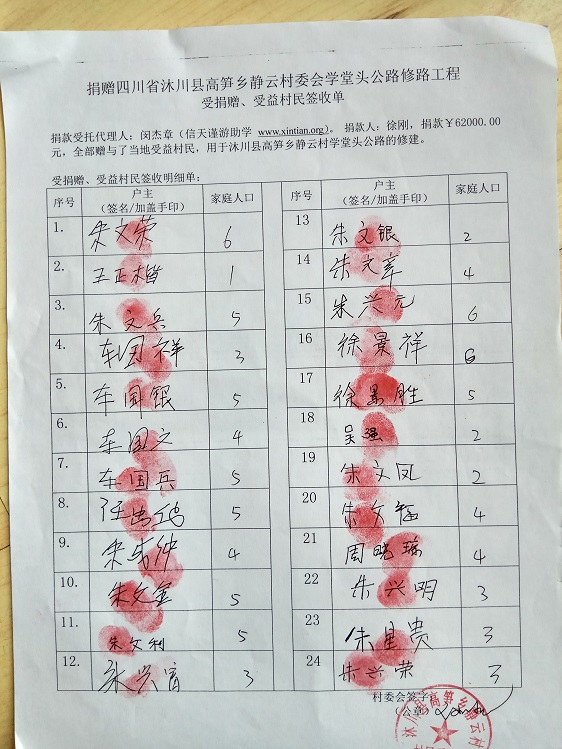 捐赠四川省沐川县高笋乡静云村委会学堂头公路修路工程
受捐赠、受益村民签收单
捐款受托代理人：闵杰章（信天谨游助学 www.xintian.org）。 捐款人：徐刚，捐款￥62000.00
元，全部赠与了当地受益村民，用于沐川县高笋乡静云村学堂头公路的修建。
受捐赠、受益村民签收明细单：
序号 户主（签名/加盖手印） 家庭人口
1. 朱文荣 6
2. 王正楷 1
3. 朱文兵 5
4. 车国祥 3
5. 车国银 5
6. 车国文 4
7. 车国兵 5
8. 5
9. 朱成钟 4
10. 朱文金 5
11. 朱文利 5
12. 朱兴富 3
序号 户主（签名/加盖手印） 家庭人口
13 朱文银 2
14 朱文章 4
15 朱兴元 6
16 徐景祥 6
17 徐景胜 5
18 吴强 2
19 朱文凤 2
20 朱文福 4
21 周晓琼 4
22 朱兴明 3
23 朱星贵 3
24 朱兴荣 3
村委会签字：
（公章）
沐川县高笋乡静云村